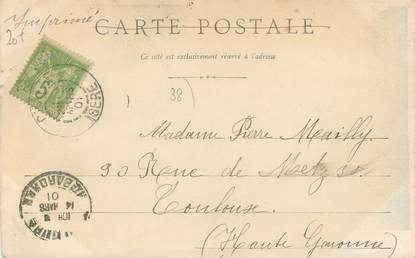 Imprimé
CARTE POSTALE
Ce côté est exclusivement réservé à l'adresse
38
ISÈRE
01
Madame Pierre Mailly
90 Rue de Metz
Toulouse
(Haute Garonne)
14 MARS
01